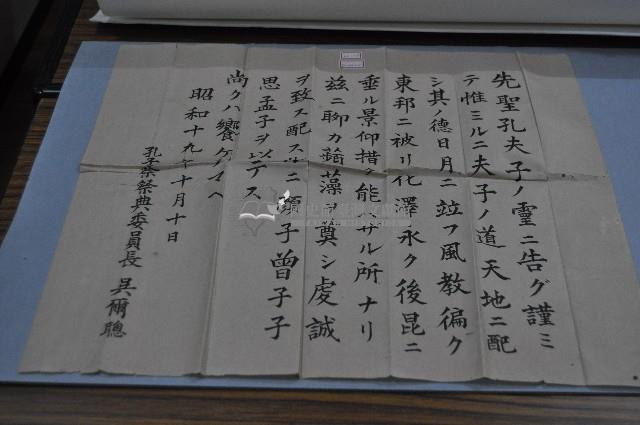 先聖孔夫子ノ靈ニ告グ謹ミ
テ惟ミルニ夫子ノ道天地ニ配
シ其ノ德日月ニ竝フ風教徧ク
東邦ニ被リ化澤永ク後昆ニ
垂ル景仰措ク能ハサル所ナリ
茲ニ聊カ蘋藻ヲ奠シ虔誠
ヲ致ス配スルニ顏子曾子子
思孟子ヲ以テス
尚クハ饗ケタマヘ
昭和十九年十月十日
孔子祭祭典委員長 吳爾聰